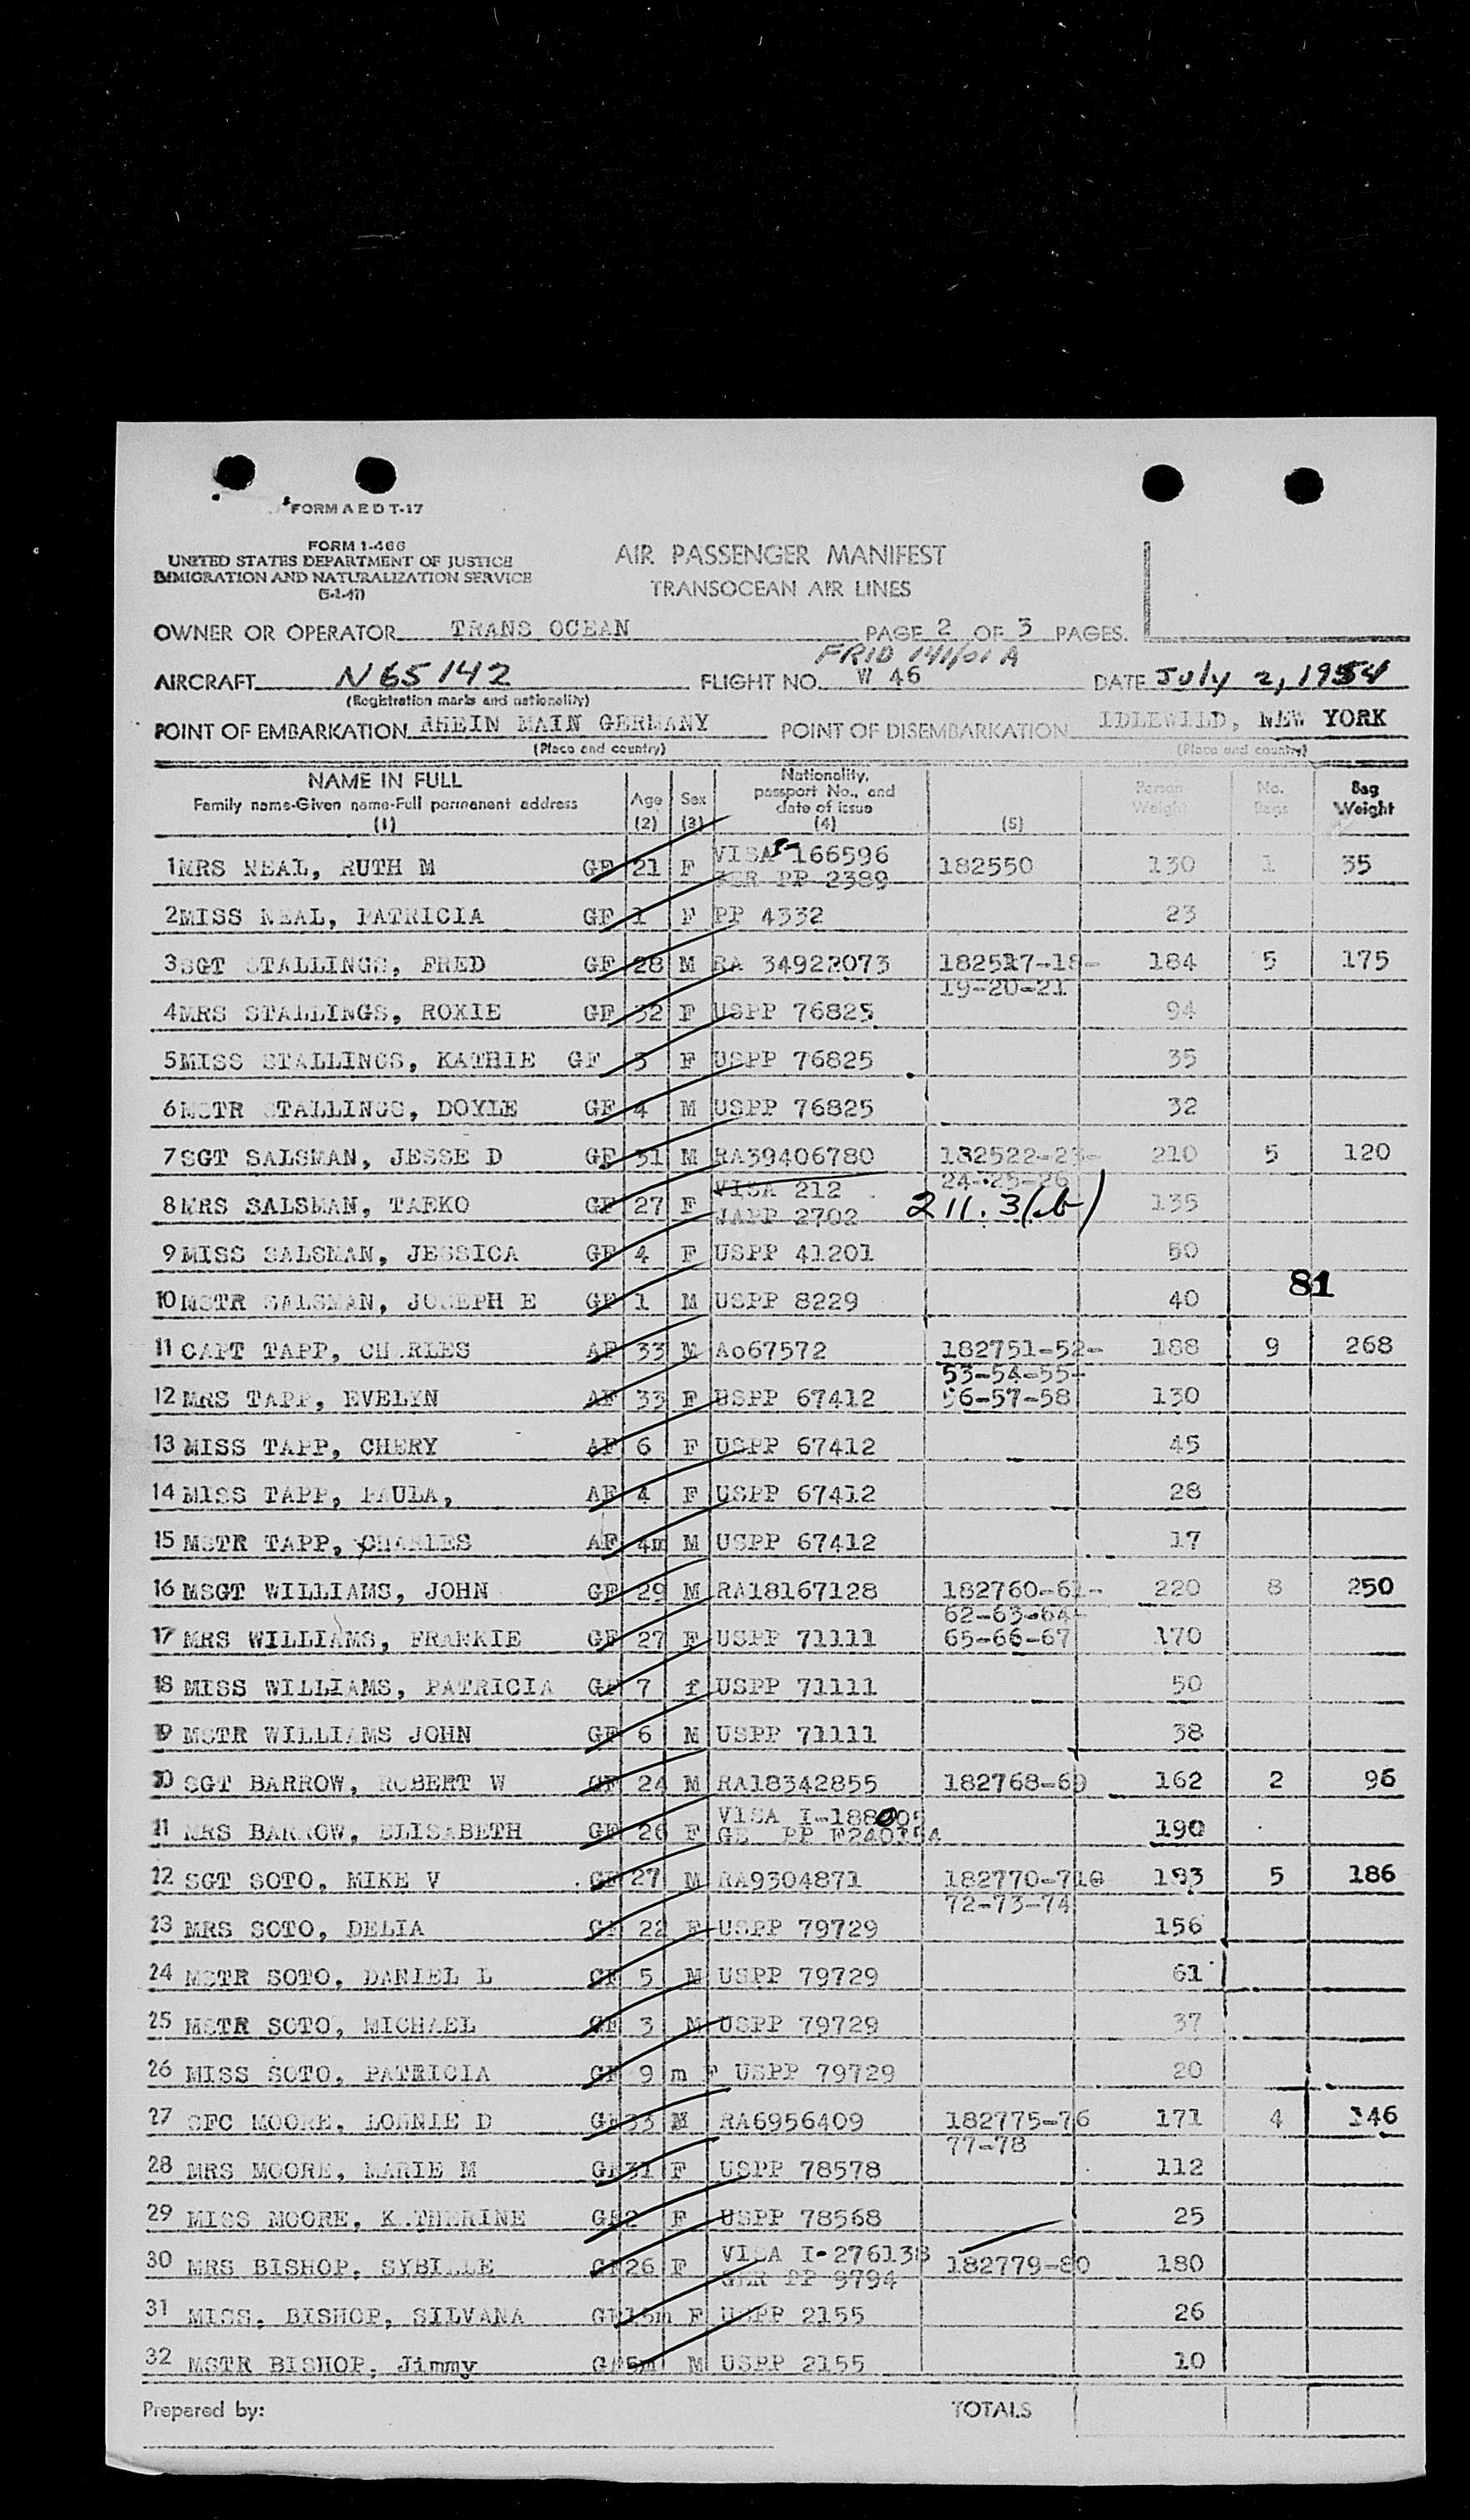 FORM A E D T-17
FORM 1-466
UNITED STATES DEPARTMENT OF JUSTICE
IMMIGRATION AND NATURALIZATION SERVICE
(5-1-47)
AIR PASSENGER MANIFEST
TRANSOCEAN AIR LINES
OWNER OR OPERATOR TRANS OCEAN PAGE 2 OF 3 PAGES.
AIRCRAFT N65142 FLIGHT NO. W 46 DATE July 2, 1954
(Registration marks and nationality)
POINT OF EMBARKATION RHEIN MAIN GERMANY POINT OF DISEMBARKATION IDLEWILD, NEW YORK
(Place and country) (Place and country)
NAME IN FULL Age Sex Nationality, passport No., and date of issue Person Weight No. Bags Bag Weight
Family name-Given name-Full permanent address
(1) (2) (3) (4) (5)
1 MRS NEAL, RUTH M GF 21 F VISA 166596 182550 130 1 35
GER PP 2389
2 MISS NEAL, PATRICIA GF 1 F PP 4332 23
3 SGT STALLINGS, FRED GF 28 M RA 34922073 182517-18- 184 5 175
19-20-21
4 MRS STALLINGS, ROXIE GF 32 F USPP 76825 94
5 MISS STALLINGS, KATHIE GF 3 F USPP 76825 35
6 MSTR STALLINGS, DOYLE GF 4 M USPP 76825 32
7 SGT SALSMAN, JESSE D GF 31 M RA39406780 182522-23- 210 5 120
24-25-26
8 MRS SALSMAN, TAEKO GF 27 F VISA 212 211.3(b) 135
JAPP 2702
9 MISS SALSMAN, JESSICA GF 4 F USPP 41201 50
81
10 MSTR SALSMAN, JOSEPH E GF 1 M USPP 8229 40
11 CAPT TAPP, CH.RLES AF 33 M Ao67572 182751-52- 188 9 268
53-54-55-
12 MRS TAPP, EVELYN AF 33 F USPP 67412 56-57-58 130
13 MISS TAPP, CHERY AF 6 F USPP 67412 45
14 MISS TAPP, PAULA, AF 4 F USPP 67412 28
15 MSTR TAPP, CHARLES AF 4m M USPP 67412 17
16 MSGT WILLIAMS, JOHN GF 29 M RA18167128 182760-61- 220 8 250
62-63-64-
17 MRS WILLIAMS, FRANKIE GF 27 F USPP 71111 65-66-67 170
18 MISS WILLIAMS, PATRICIA GF 7 f USPP 71111 50
19 MSTR WILLIAMS JOHN GF 6 M USPP 71111 38
20 SGT BARROW, ROBERT W GF 24 M RA18342855 182768-69 162 2 96
21 MRS BARROW, ELISABETH GF 26 F VISA I-188005 190
GE PP F240154
22 SGT SOTO, MIKE V GF 27 M RA9304871 182770-71 183 5 186
72-73-74
23 MRS SOTO, DELIA GF 22 F USPP 79729 156
24 MSTR SOTO, DANIEL L GF 5 M USPP 79729 61
25 MSTR SOTO, MICHAEL GF 3 M USPP 79729 37
26 MISS SOTO, PATRICIA GF 9 m F USPP 79729 20
27 SFC MOORE, LONNIE D GF 33 M RA6956409 182775-76 171 4 146
77-78
28 MRS MOORE, MARIE M GF 31 F USPP 78578 112
29 MISS MOORE, K.THERINE GF 2 F USPP 78568 25
30 MRS BISHOP, SYBILLE GF 26 F VISA I-276138 182779-80 180
GER PP 9794
31 MISS, BISHOP, SILVANA GF 15m F USPP 2155 26
32 MSTR BISHOP, Jimmy GF 5m M USPP 2155 10
Prepared by: TOTALS